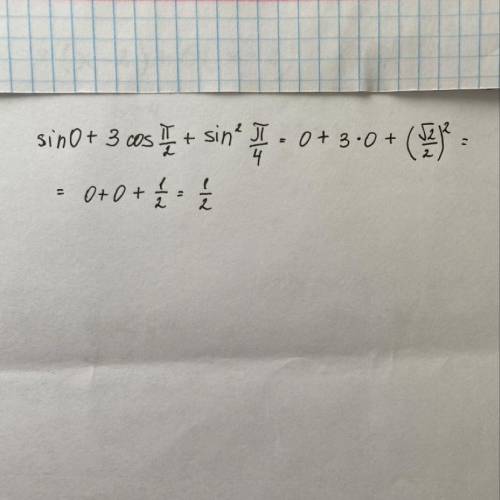 sin0 + 3 cos π/2 + sin² π/4 = 0 + 3 · 0 + (√2/2)² =
= 0 + 0 + 1/2 = 1/2